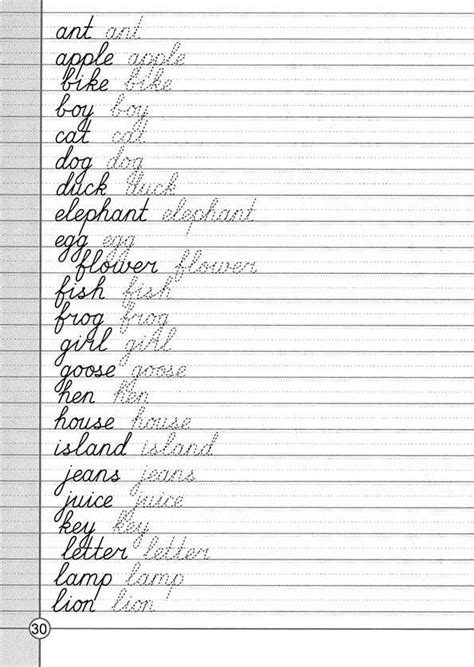 ant ant
apple apple
bike bike
boy boy
cat cat
dog dog
duck duck
elephant elephant
egg egg
flower flower
fish fish
frog frog
girl girl
goose goose
hen hen
house house
island island
jeans jeans
juice juice
key key
letter letter
lamp lamp
lion lion
30